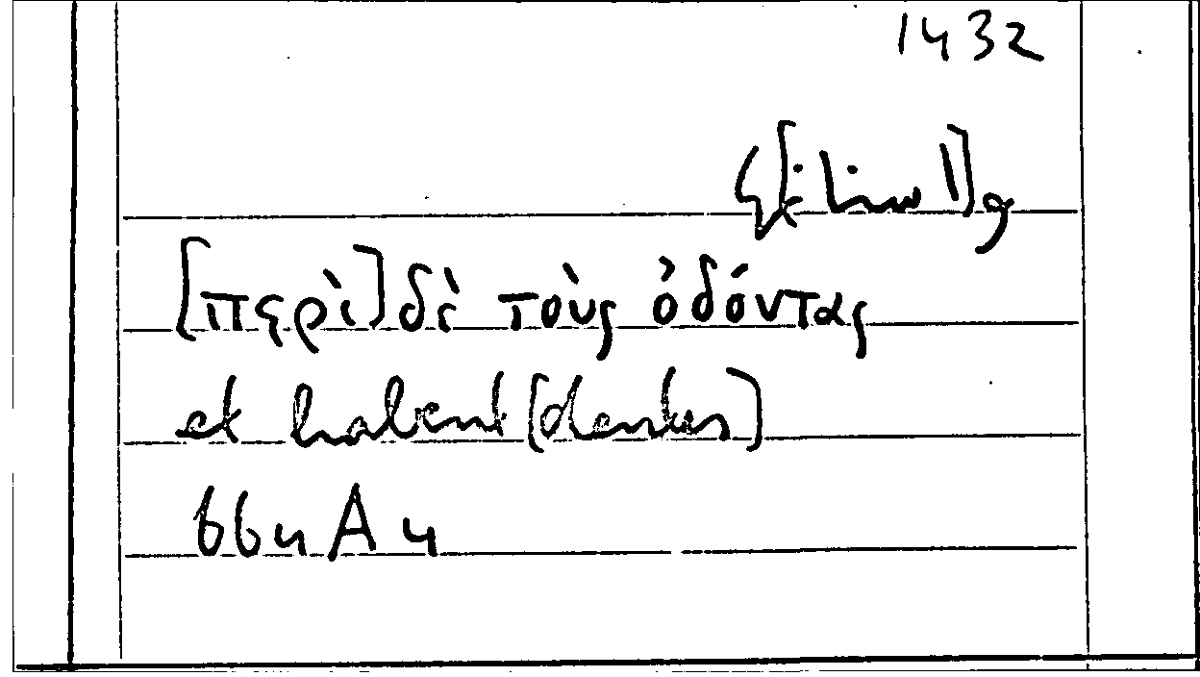 1432
[περὶ] δὲ τοὺς ὀδόντας
et habent [dentes]
664 A 4